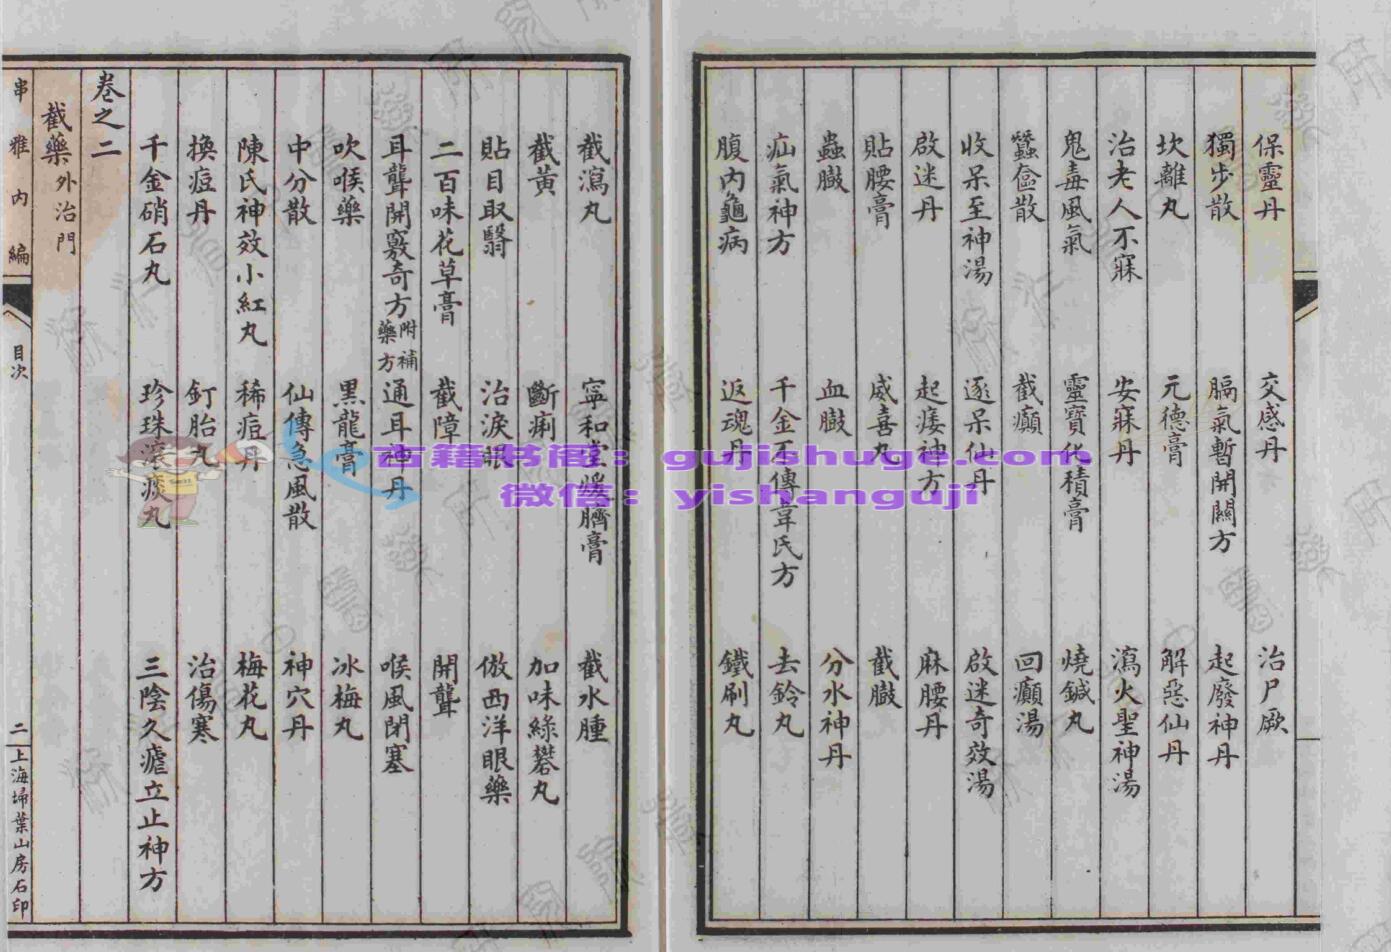 保靈丹 交感丹 治尸厥
獨步散 膈氣暫開關方 起廢神丹
坎離丸 元德膏 解惡仙丹
治老人不寐 安寐丹 瀉火聖神湯
鬼毒風氣 靈寶化積膏 燒鍼丸
蠶僵散 截癲 回癲湯
收呆至神湯 逐呆仙丹 啟迷奇效湯
啟迷丹 起痿神方 麻腰丹
貼腰膏 威喜丸 截臌
蟲臌 血臌 分水神丹
疝氣神方 千金不傳韋氏方 去鈴丸
腹內龜病 返魂丹 鐵刷丸
截瀉丸 寧和堂煖臍膏 截水腫
截黃 斷痢 加味綠礬丸
貼目取翳 治淚眼 倣西洋眼藥
二百味花草膏 截障 開聾
耳聾開竅奇方 附補藥方 通耳神丹 喉風閉塞
吹喉藥 黑龍膏 冰梅丸
中分散 仙傳急風散 神穴丹
陳氏神效小紅丸 稀痘丹 梅花丸
換痘丹 釘胎丸 治傷寒
千金硝石丸 珍珠滾痰丸 三陰久瘧立止神方
卷之二
截藥外治門
串雅內編 目次 二 上海埽葉山房石印
古籍书阁：gujishuge.com
微信：yishanguji